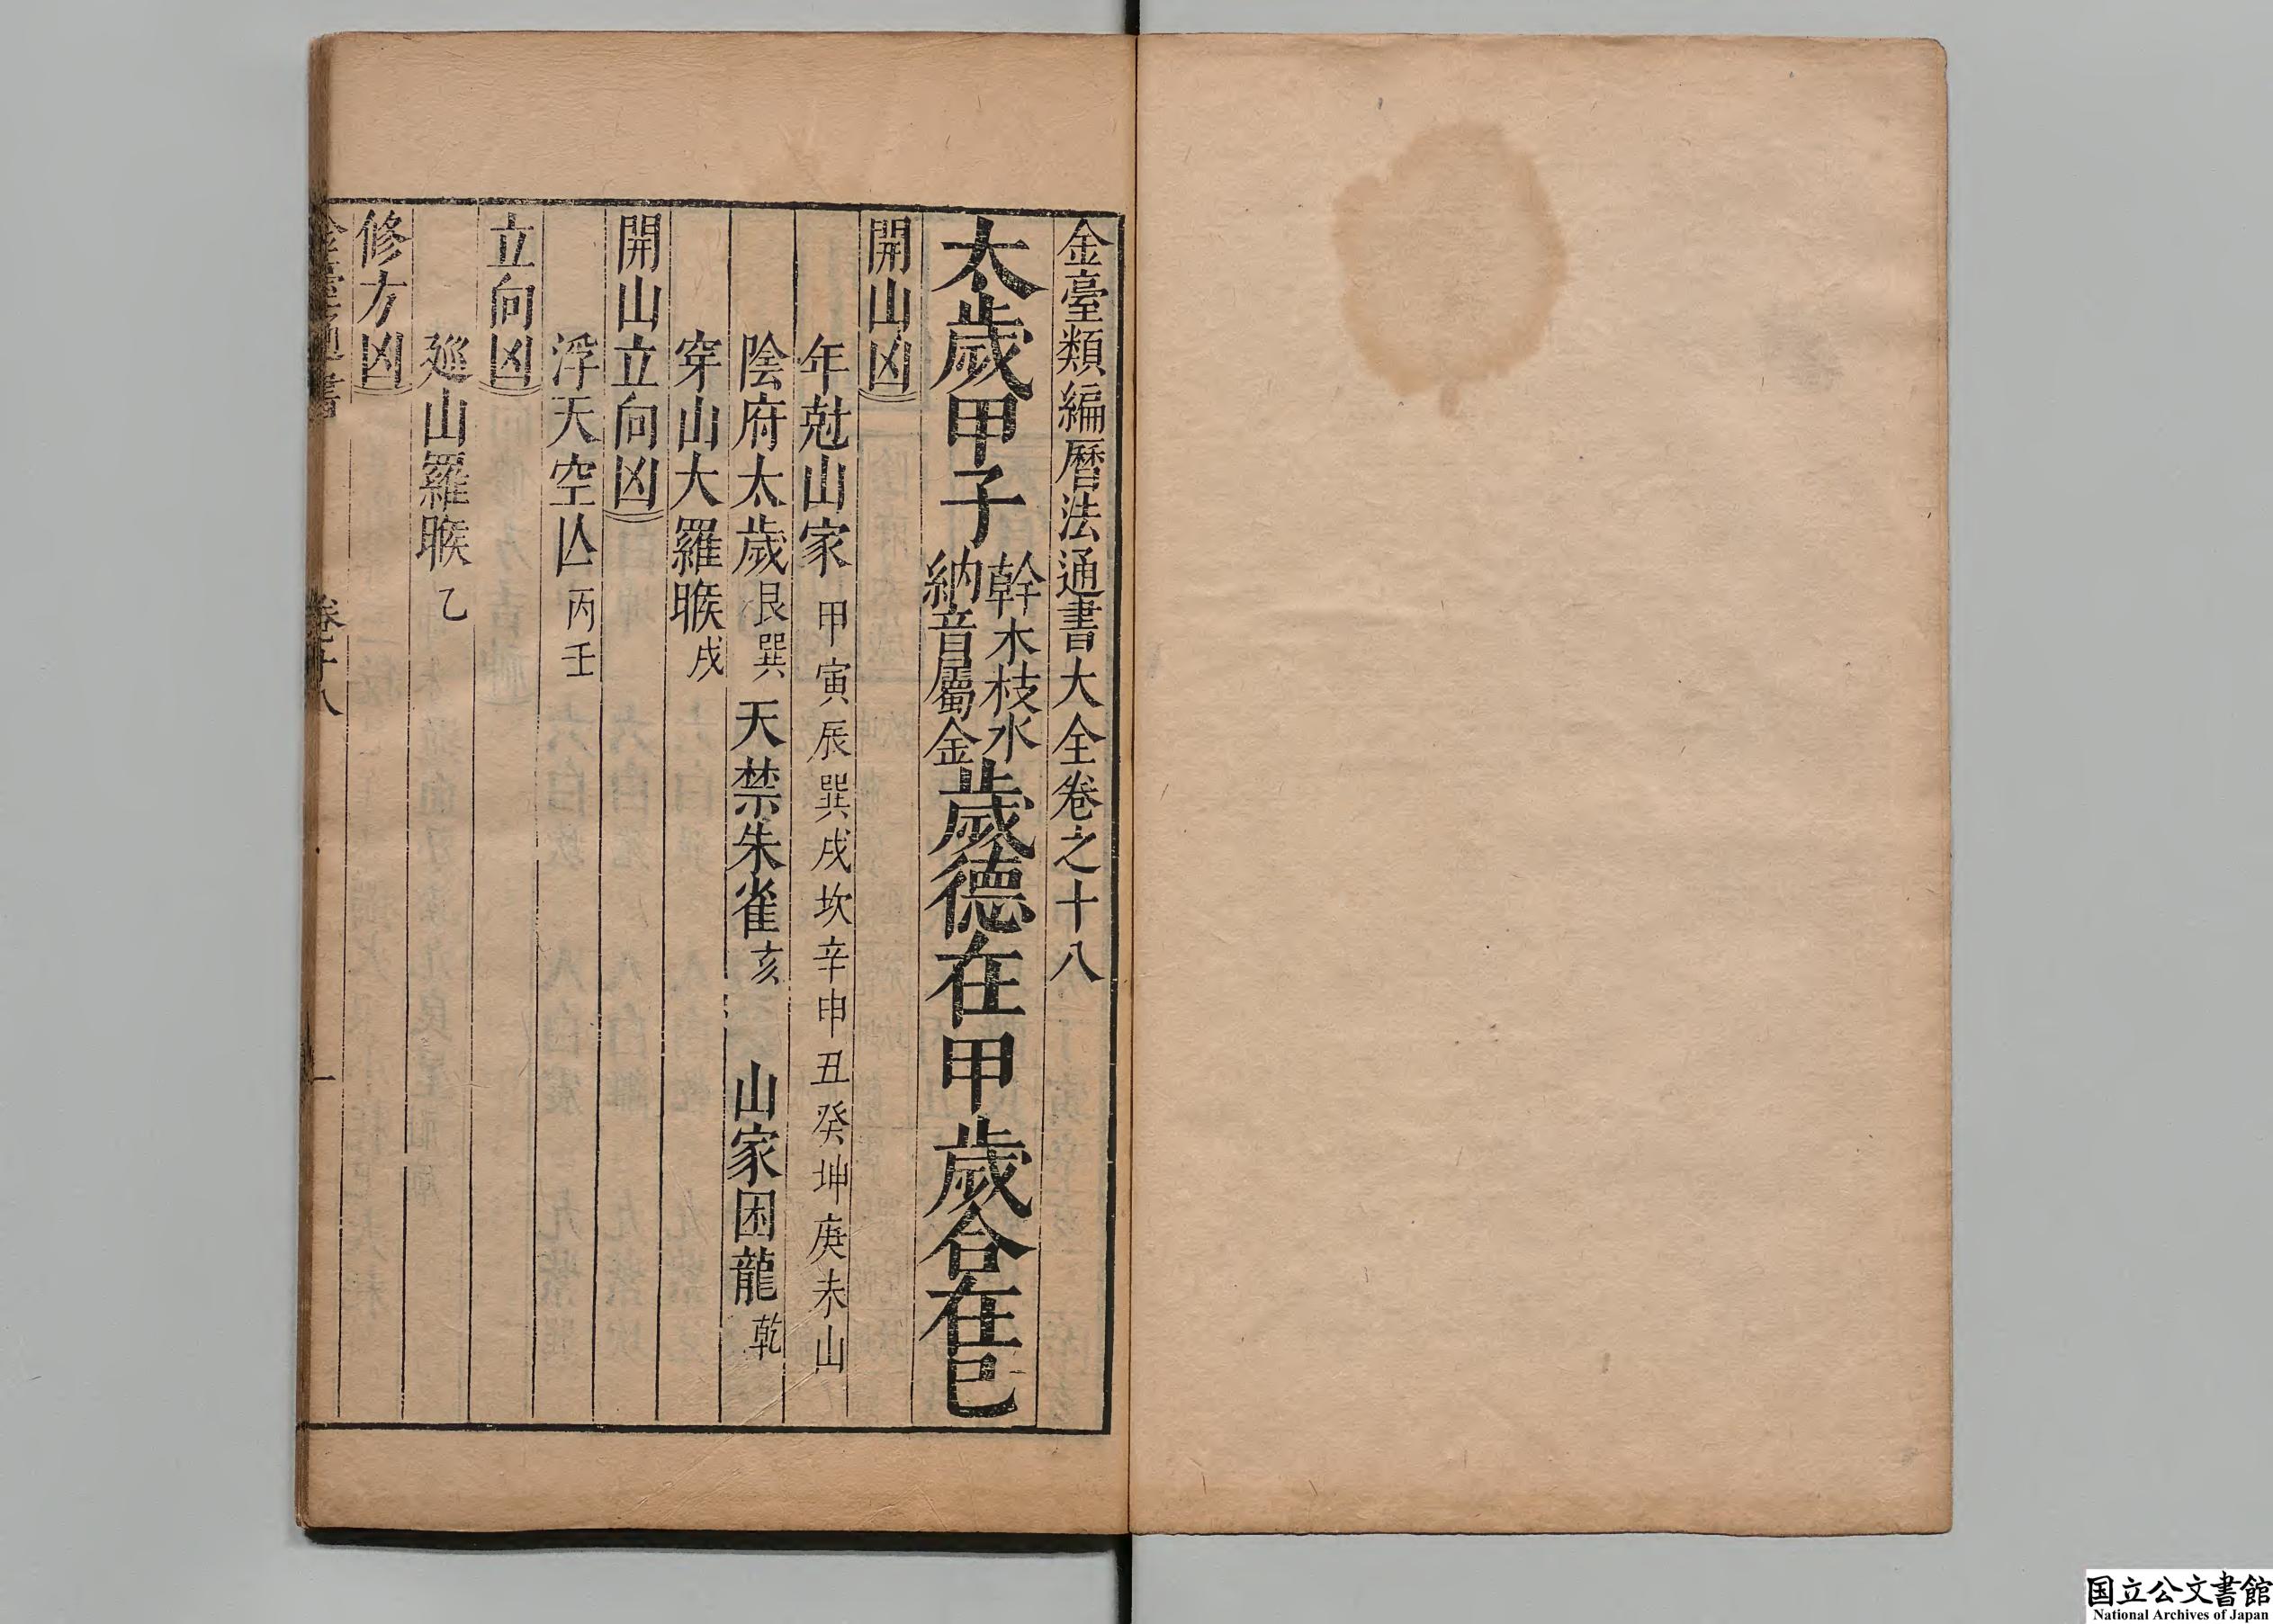 金臺類編曆法通書大全卷之十八
太歲甲子 幹木枝水 納音屬金 歲德在甲 歲合在己
開山凶
年尅山家 甲寅辰巽戌坎辛申丑癸坤庚未山
陰府太歲 艮巽 天禁朱雀 亥 山家困龍 乾
穿山大羅㬋 戌
開山立向凶
浮天空亾 丙壬
立向凶
廵山羅㬋 乙
修方凶
卷十八 一
国立公文書館
National Archives of Japan